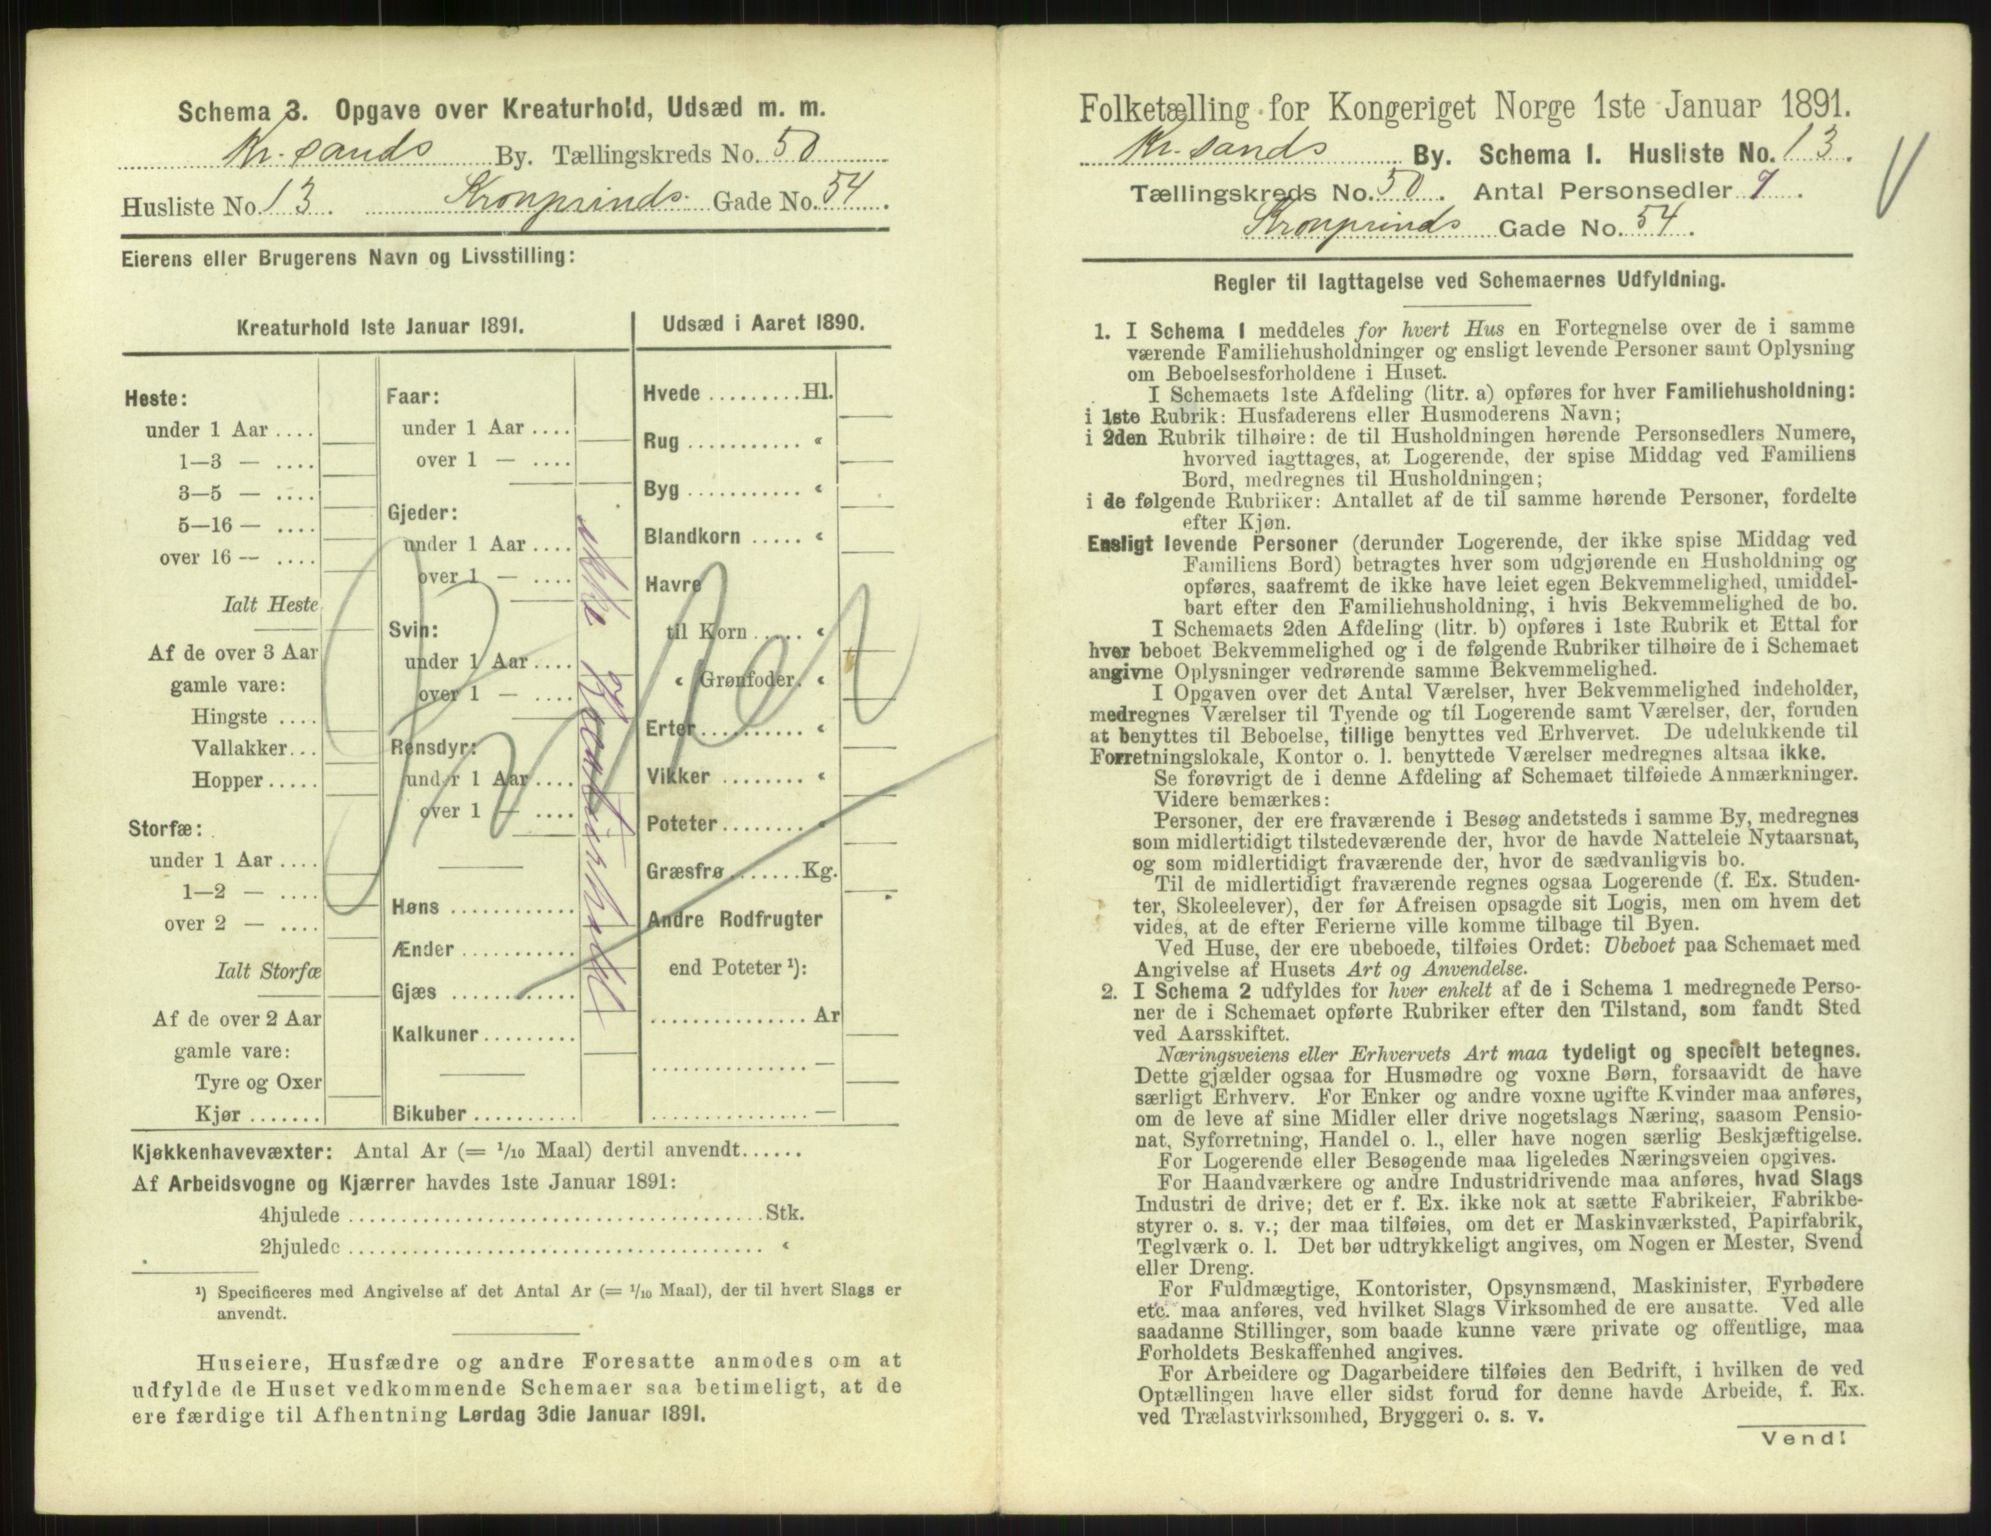 Schema 3. Opgave over Kreaturhold, Udsæd m. m.
Kr. sands By. Tællingskreds No. 50
Husliste No. 13. Kronprinds Gade No. 54.
Eierens eller Brugerens Navn og Livsstilling:
Kreaturhold 1ste Januar 1891.
Heste:
under 1 Aar ....
1—3 — ....
3—5 — ....
5—16 — ....
over 16 — ....
Ialt Heste
Af de over 3 Aar
gamle vare:
Hingste ....
Vallakker...
Hopper.....
Storfæ:
under 1 Aar ....
1—2 — ....
over 2 — ....
Ialt Storfæ
Af de over 2 Aar
gamle vare:
Tyre og Oxer
Kjør .......
Faar:
under 1 Aar ....
over 1 — ....
Gjeder:
under 1 Aar ....
over 1 — ....
Svin:
under 1 Aar ....
over 1 — ....
Rensdyr:
under 1 Aar ....
over 1 — ....
Høns ............
Ænder ...........
Gjæs ............
Kalkuner.........
Bikuber ..........
ikke
Udsæd i Aaret 1890.
Hvede .........Hl.
Rug ........... «
Byg ........... «
Blandkorn ..... «
Havre
til Korn ..... «
« Grønfoder. «
Erter.......... «
Vikker ........ «
Poteter........ «
Græsfrø.......Kg.
Andre Rodfrugter
end Poteter ¹):
...............Ar
...............—
...............—
Kjøkkenhavevæxter: Antal Ar (= 1/10 Maal) dertil anvendt......
Af Arbeidsvogne og Kjærrer havdes 1ste Januar 1891:
4hjulede ........................................Stk.
2hjulede ........................................ «
¹) Specificeres med Angivelse af det Antal Ar (= 1/10 Maal), der til hvert Slags er
anvendt.
Huseiere, Husfædre og andre Foresatte anmodes om at
udfylde de Huset vedkommende Schemaer saa betimeligt, at de
ere færdige til Afhentning Lørdag 3die Januar 1891.
Folketælling for Kongeriget Norge 1ste Januar 1891.
Kr. sands By. Schema 1. Husliste No. 13.
Tællingskreds No. 50. Antal Personsedler 9.
Kronprinds Gade No. 54.
Regler til Iagttagelse ved Schemaernes Udfyldning.
1. I Schema 1 meddeles for hvert Hus en Fortegnelse over de i samme
værende Familiehusholdninger og ensligt levende Personer samt Oplysning
om Beboelsesforholdene i Huset.
I Schemaets 1ste Afdeling (litr. a) opføres for hver Familiehusholdning:
i 1ste Rubrik: Husfaderens eller Husmoderens Navn;
i 2den Rubrik tilhøire: de til Husholdningen hørende Personsedlers Numere,
hvorved iagttages, at Logerende, der spise Middag ved Familiens
Bord, medregnes til Husholdningen;
i de følgende Rubriker: Antallet af de til samme hørende Personer, fordelte
efter Kjøn.
Ensligt levende Personer (derunder Logerende, der ikke spise Middag ved
Familiens Bord) betragtes hver som udgjørende en Husholdning og
opføres, saafremt de ikke have leiet egen Bekvemmelighed, umiddel-
bart efter den Familiehusholdning, i hvis Bekvemmelighed de bo.
I Schemaets 2den Afdeling (litr. b) opføres i 1ste Rubrik et Ettal for
hver beboet Bekvemmelighed og i de følgende Rubriker tilhøire de i Schemaet
angivne Oplysninger vedrørende samme Bekvemmelighed.
I Opgaven over det Antal Værelser, hver Bekvemmelighed indeholder,
medregnes Værelser til Tyende og til Logerende samt Værelser, der, foruden
at benyttes til Beboelse, tillige benyttes ved Erhvervet. De udelukkende til
Forretningslokale, Kontor o. l. benyttede Værelser medregnes altsaa ikke.
Se forøvrigt de i denne Afdeling af Schemaet tilføiede Anmærkninger.
Videre bemærkes:
Personer, der ere fraværende i Besøg andetsteds i samme By, medregnes
som midlertidigt tilstedeværende der, hvor de havde Natteleie Nytaarsnat,
og som midlertidigt fraværende der, hvor de sædvanligvis bo.
Til de midlertidigt fraværende regnes ogsaa Logerende (f. Ex. Studen-
ter, Skoleelever), der før Afreisen opsagde sit Logis, men om hvem det
vides, at de efter Ferierne ville komme tilbage til Byen.
Ved Huse, der ere ubeboede, tilføies Ordet: Ubeboet paa Schemaet med
Angivelse af Husets Art og Anvendelse.
2. I Schema 2 udfyldes for hver enkelt af de i Schema 1 medregnede Perso-
ner de i Schemaet opførte Rubriker efter den Tilstand, som fandt Sted
ved Aarsskiftet.
Næringsveiens eller Erhvervets Art maa tydeligt og specielt betegnes.
Dette gjælder ogsaa for Husmødre og voxne Børn, forsaavidt de have
særligt Erhverv. For Enker og andre voxne ugifte Kvinder maa anføres,
om de leve af sine Midler eller drive nogetslags Næring, saasom Pensio-
nat, Syforretning, Handel o. l., eller have nogen særlig Beskjæftigelse.
For Logerende eller Besøgende maa ligeledes Næringsveien opgives.
For Haandværkere og andre Industridrivende maa anføres, hvad Slags
Industri de drive; det er f. Ex. ikke nok at sætte Fabrikeier, Fabrikbe-
styrer o. s. v.; der maa tilføies, om det er Maskinværksted, Papirfabrik,
Teglværk o. l. Det bør udtrykkeligt angives, om Nogen er Mester, Svend
eller Dreng.
For Fuldmægtige, Kontorister, Opsynsmænd, Maskinister, Fyrbødere
etc. maa anføres, ved hvilket Slags Virksomhed de ere ansatte. Ved alle
saadanne Stillinger, som baade kunne være private og offentlige, maa
Forholdets Beskaffenhed angives.
For Arbeidere og Dagarbeidere tilføies den Bedrift, i hvilken de ved
Optællingen have eller sidst forud for denne havde Arbeide, f. Ex.
ved Trælastvirksomhed, Bryggeri o. s. v.
Vend!